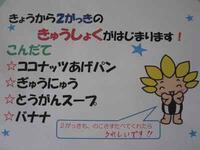 きょうから2がっきの
きゅうしょくがはじまります!
こんだて
☆ココナッツあげパン
☆ぎゅうにゅう
☆とうがんスープ
☆バナナ
2がっきも、のこさずたべてくれたら
うれしいです!!